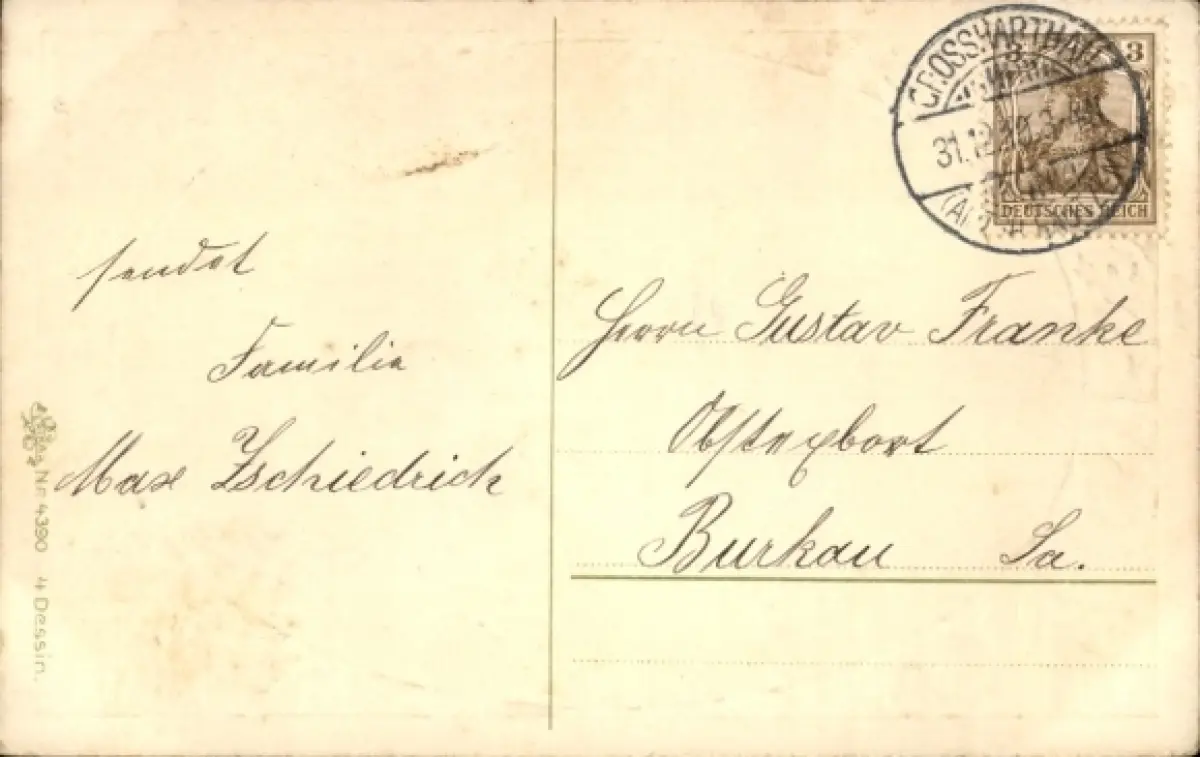 sendet
Familie
Max Zschiedrich
Nr 4390 4 Dessin.
GROSSHARTHAU
31.12.
3 3
DEUTSCHES REICH
Herrn Gustav Franke
Burkau Sa.